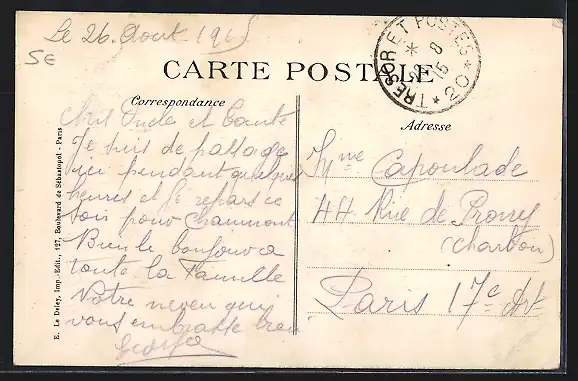 Le 26 Aout 1915
5E
CARTE POSTALE
TRESOR ET POSTES
* 20 *
8
15
Correspondance
Adresse
Oncle et Tante
Je suis de passage
ici pendant quelques
heures et je repars ce
soir pour Chaumont
Bien le bonjour a
toute la Famille
Votre neveu qui
vous embrasse bien
Mme Capoulade
44 Rue de Prony
(charbon)
Paris 17e Art
E. Le Deley, Imp.-Edit., 127, Boulevard de Sébastopol - Paris